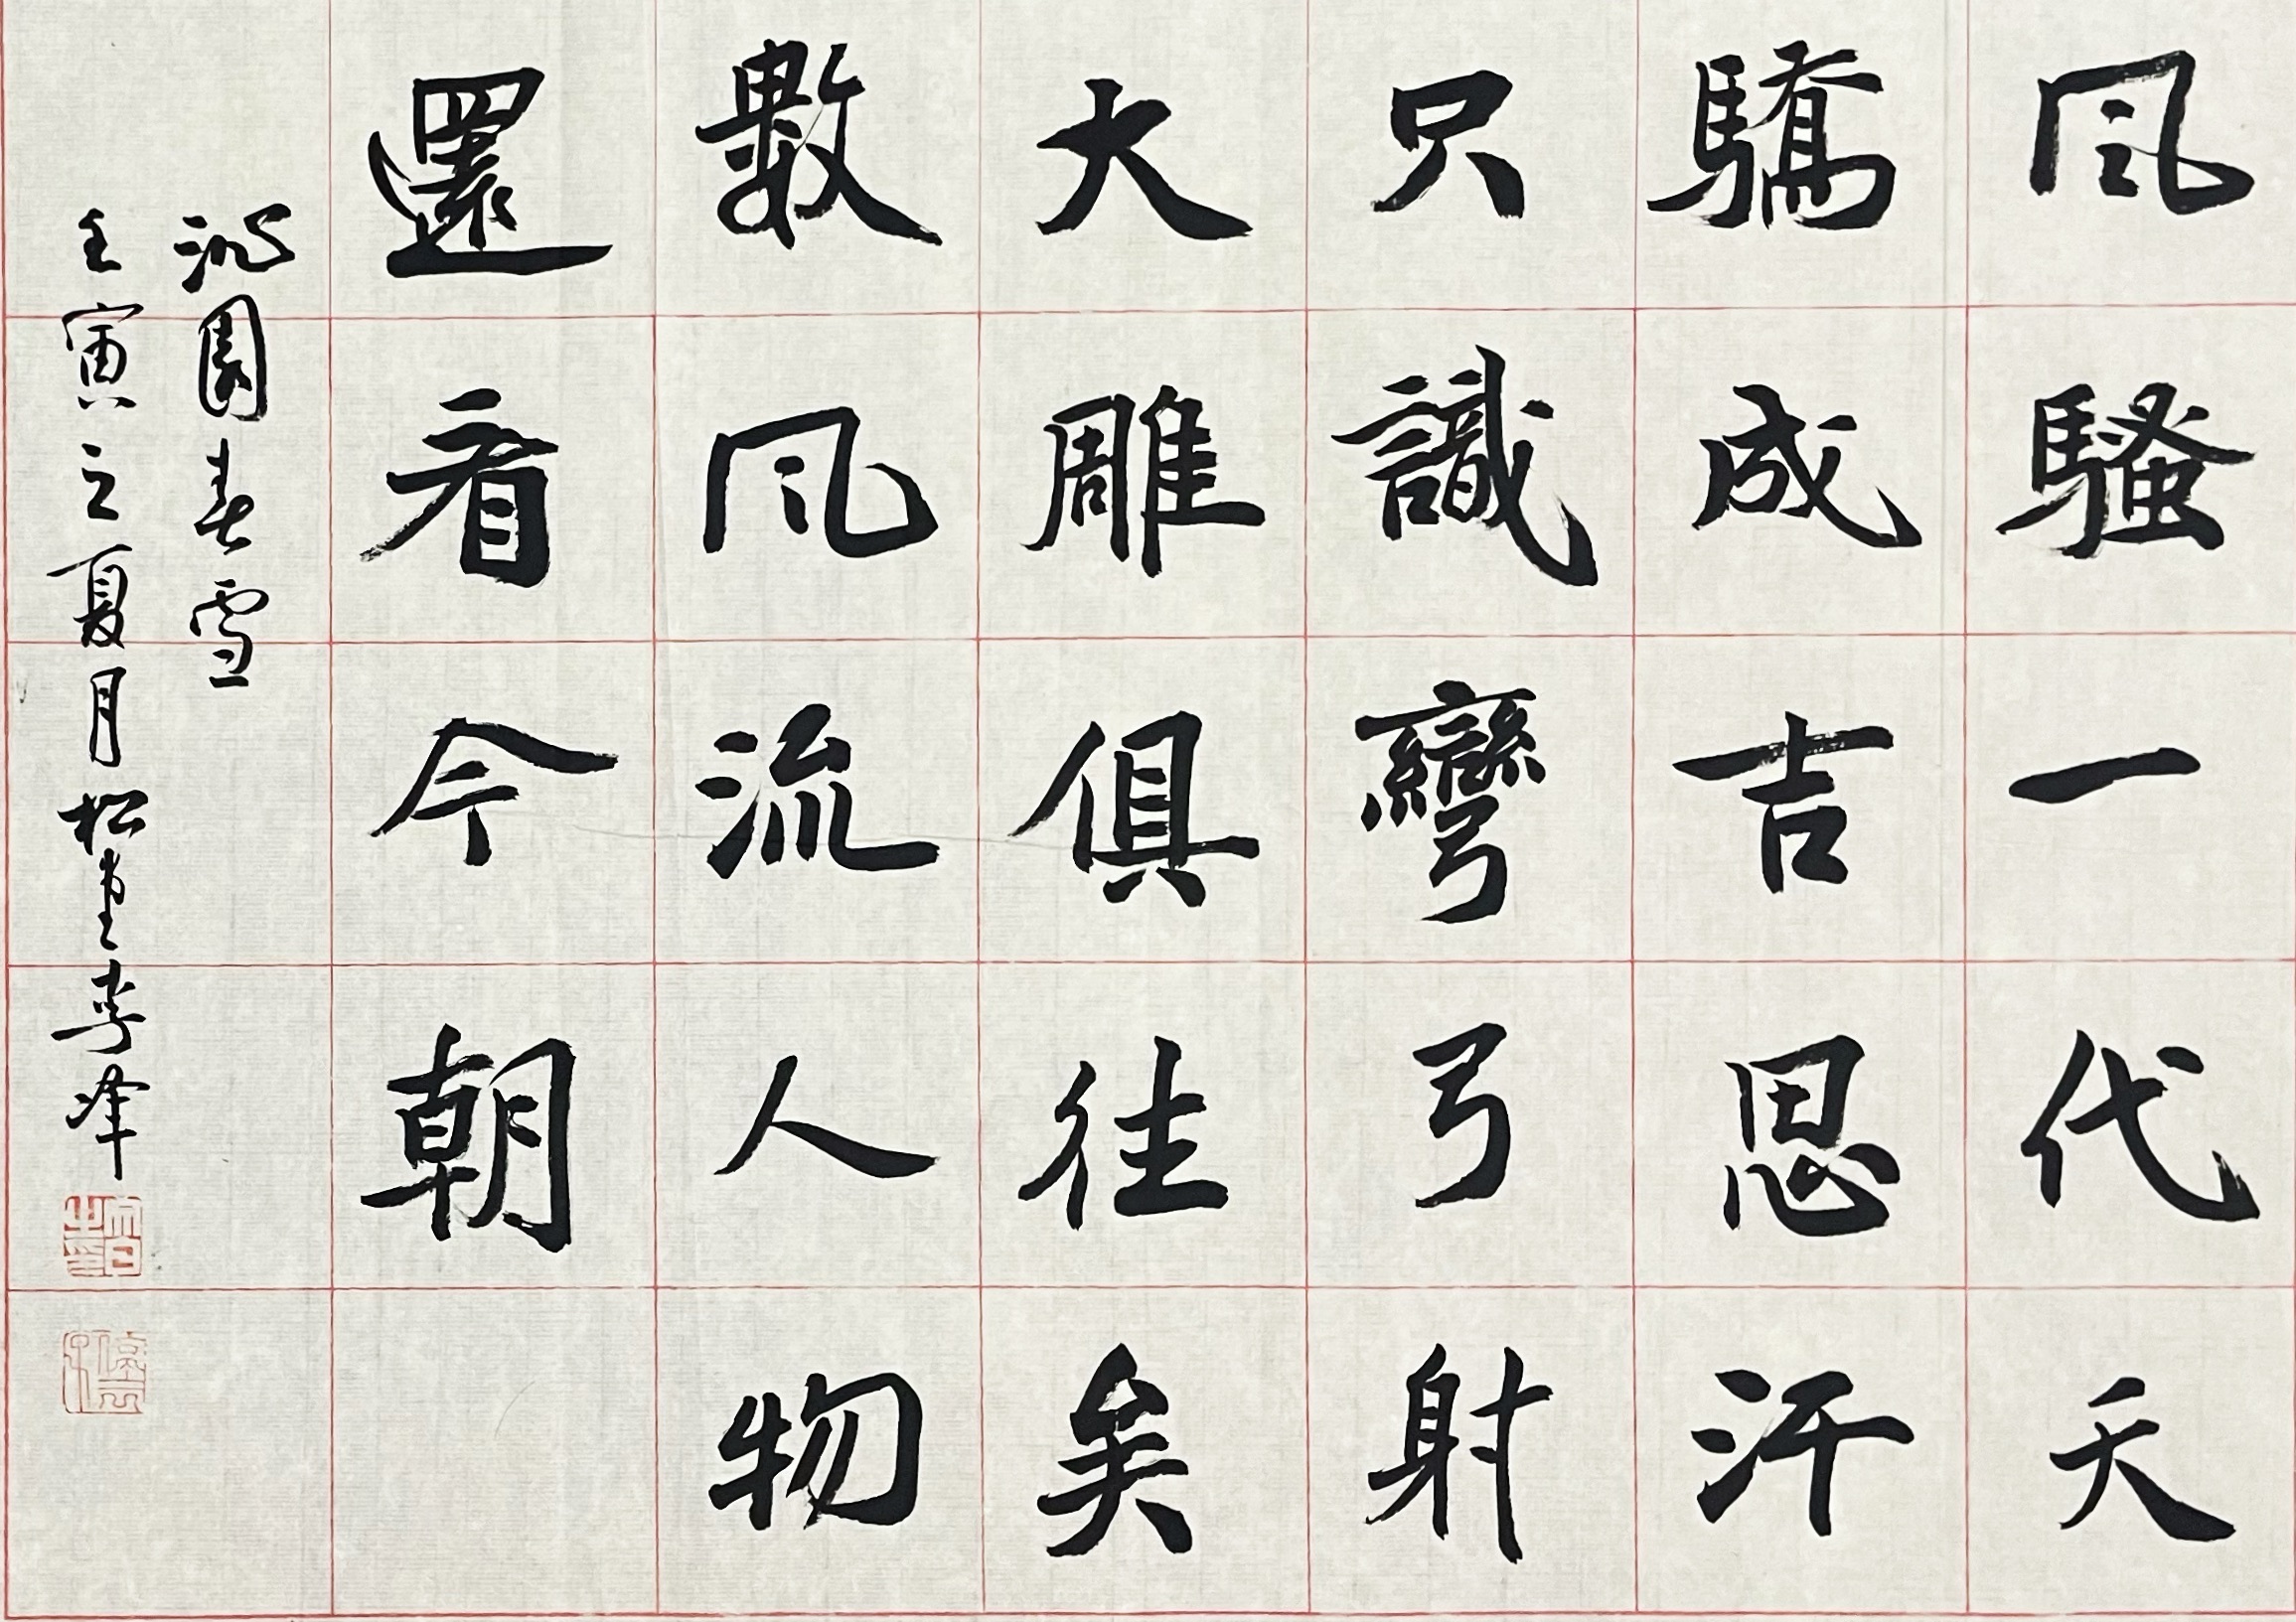 風騷一代天
驕成吉思汗
只識彎弓射
大雕俱往矣
數風流人物
還看今朝
沁園春雪
壬寅之夏月松堂李峰